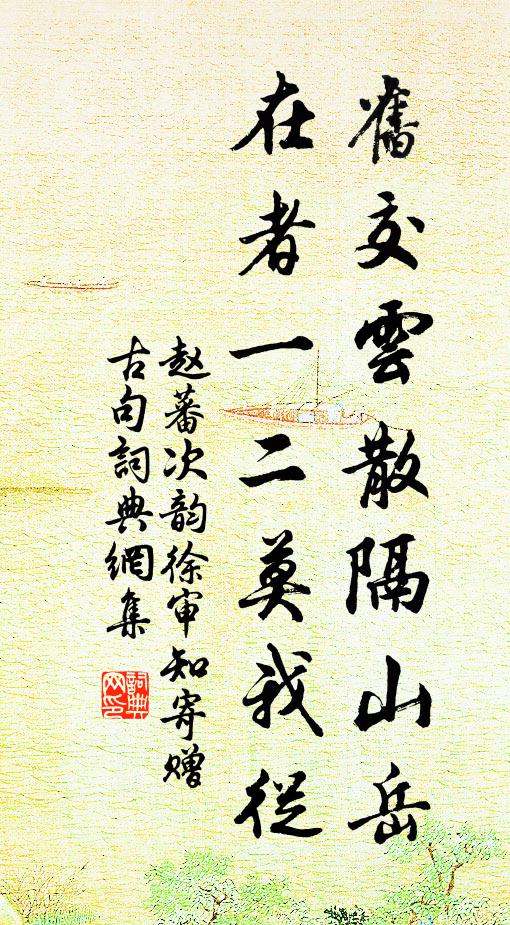 舊交雲散隔山岳
在者一二莫我從
赵蕃次韵徐审知寄赠
古句詞典網集
詞典
网印